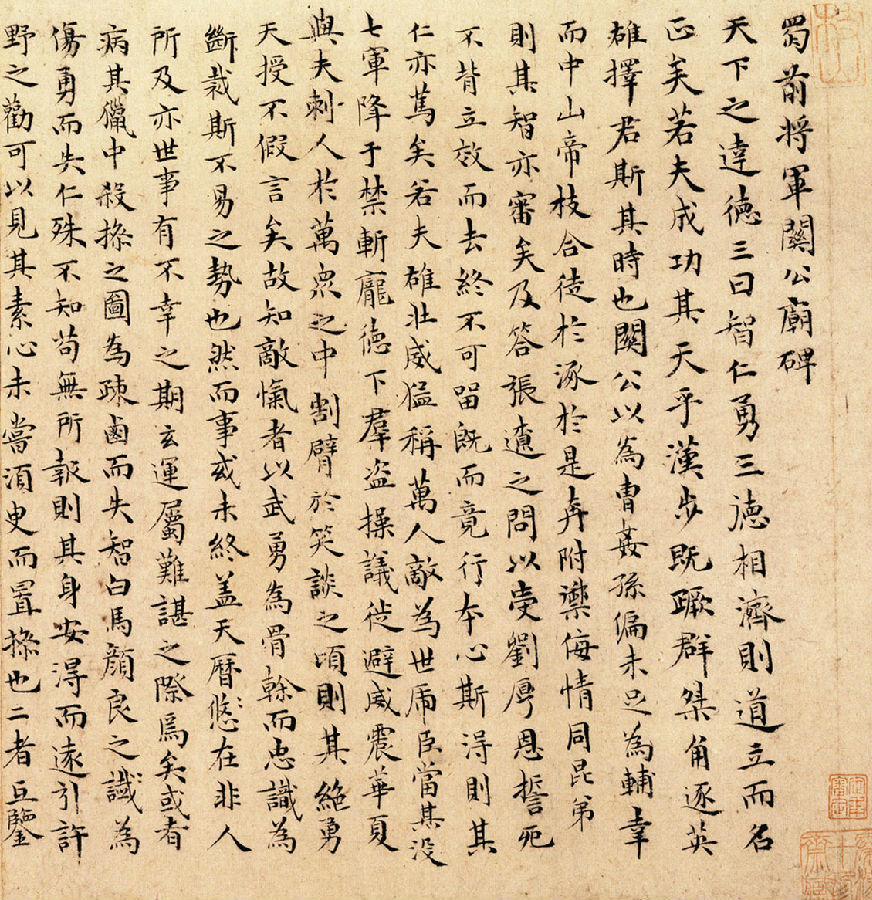 蜀前将軍關公廟碑
天下之達德三曰智仁勇三德相濟則道立而名
正矣若夫成功其天乎漢步既蹶群桀角逐英
雄擇君斯其時也關公以為曹姦孫偏未足為輔幸
而中山帝枝合徒於涿於是奔附禦侮情同昆弟
則其智亦審矣及答張遼之問以受劉厚恩誓死
不背立效而去終不可留既而竟行本心斯得則其
仁亦篤矣若夫雄壯威猛稱萬人敵為世虎臣當其没
七軍降于禁斬龐德下羣盗操議徙避威震華夏
與夫刺人於萬衆之中割臂於笑談之頃則其絶勇
天授不假言矣故知敵愾者以武勇為骨榦而忠識為
斷裁斯不易之勢也然而事或未終盖天曆悠悠在非人
所及亦世事有不幸之期玄運屬難諶之際焉矣或者
病其獵中殺操之圖為疎鹵而失智白馬顔良之誠為
傷勇而失仁殊不知苟無所報則其身安得而遠引許
野之勸可以見其素心未嘗須臾而置操也二者互鑒